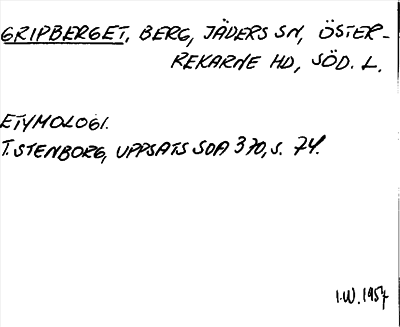 GRIPBERGET, BERG, JÄDERS SN, ÖSTER-
REKARNE HD, SÖD. L.
ETYMOLOGI.
T. STENBORG, UPPSATS SOA 370, S. 74.
I.W. 1957